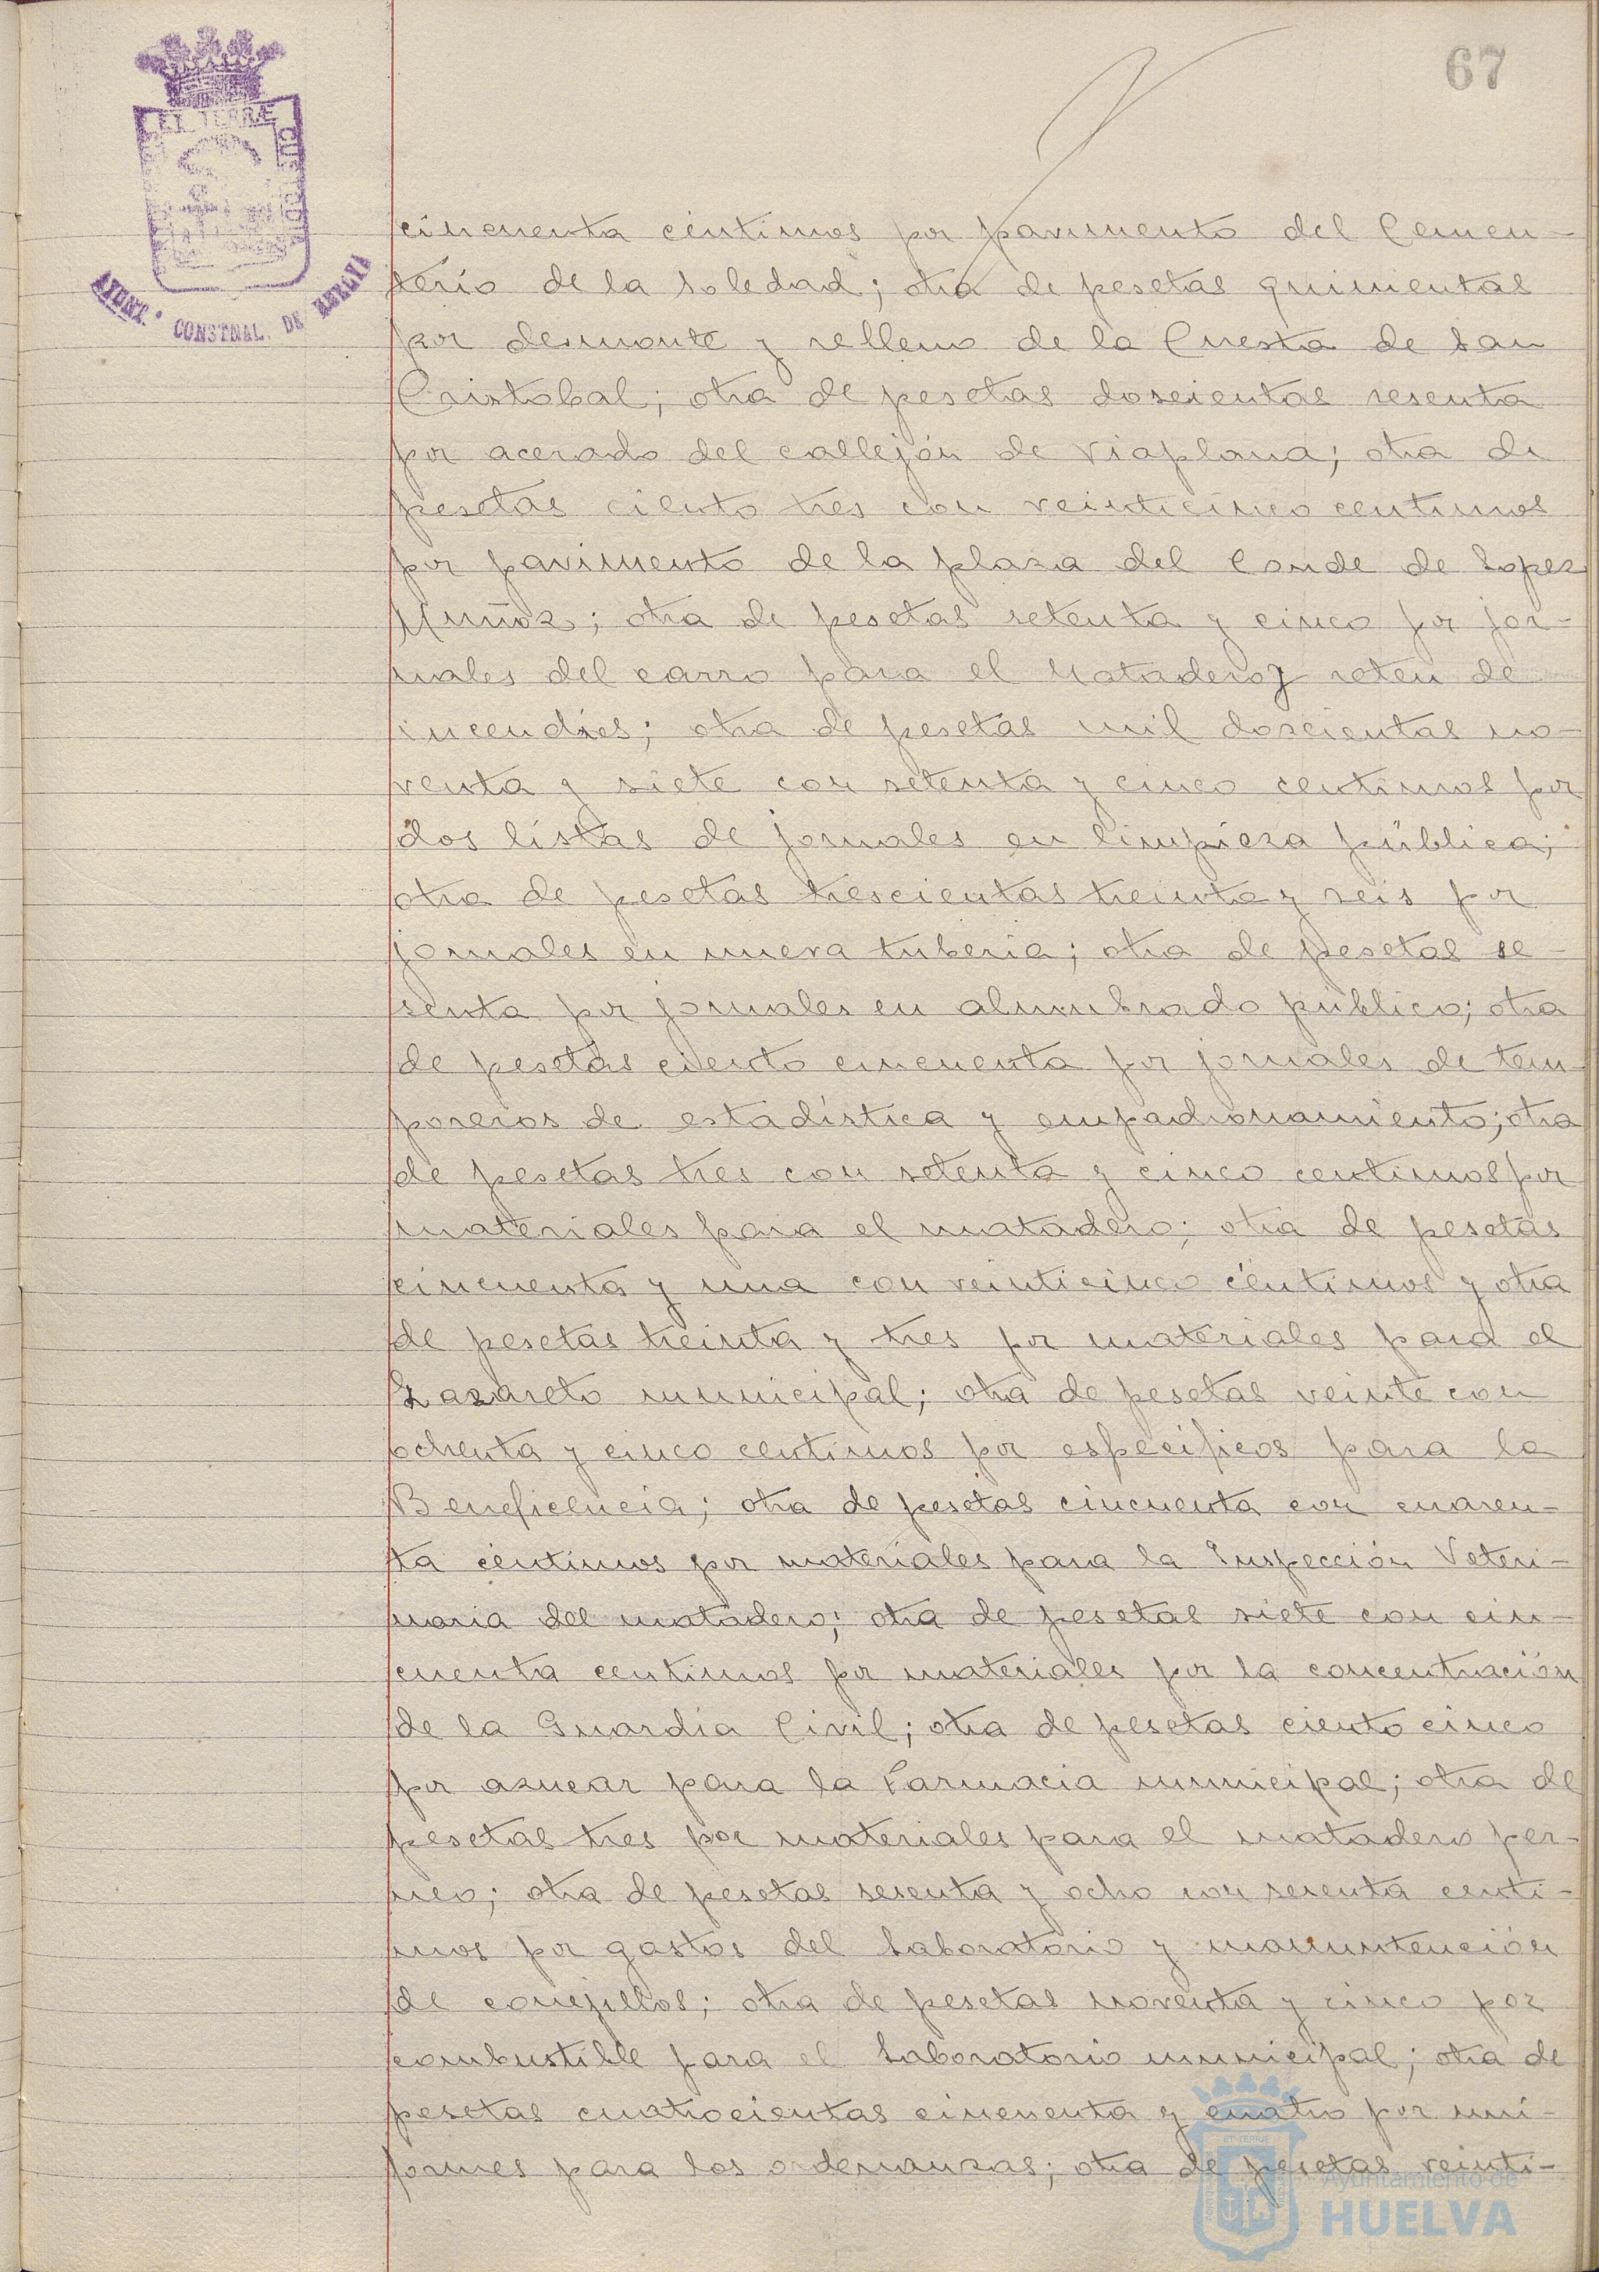 67
ET TERRÆ CUSTODIA
AYUNT.º CONSTNAL. DE HUELVA
cincuenta céntimos por pavimento del Cemen-
terio de la Soledad; otra de pesetas quinientas
por desmonte y relleno de la Cuesta de San
Cristobal; otra de pesetas doscientas sesenta
por acerado del callejón de Viaplana; otra de
pesetas ciento tres con veinticinco centimos
por pavimento de la plaza del Conde de Lopez
Muñoz; otra de pesetas setenta y cinco por jor-
nales del carro para el Matadero y reten de
incendios; otra de pesetas mil doscientas no-
venta y siete con setenta y cinco centimos por
dos listas de jornales en limpieza pública;
otra de pesetas trescientas treinta y seis por
jornales en nueva tuberia; otra de pesetas se-
senta por jornales en alumbrado público; otra
de pesetas ciento cincuenta por jornales de tem
poreros de estadística y empadronamiento; otra
de pesetas tres con setenta y cinco centimos por
materiales para el matadero; otra de pesetas
cincuenta y una con veinticinco céntimos y otra
de pesetas treinta y tres por materiales para el
Lazareto municipal; otra de pesetas veinte con
ochenta y cinco centimos por especificos para la
Beneficencia; otra de pesetas cincuenta con cuaren-
ta céntimos por materiales para la Inspección Veteri-
naria del matadero; otra de pesetas siete con cin-
cuenta centimos por materiales por la concentración
de la Guardia Civil; otra de pesetas ciento cinco
por azucar para la Farmacia municipal; otra de
pesetas tres por materiales para el matadero per-
neo; otra de pesetas sesenta y ocho con sesenta centi-
mos por gastos del Laboratorio y manuntención
de conejillos; otra de pesetas noventa y cinco por
combustible para el Laboratorio municipal; otra de
pesetas cuatrocientas cincuenta y cuatro por uni-
formes para los ordenanzas; otra de pesetas veinti-
Ayuntamiento de
HUELVA